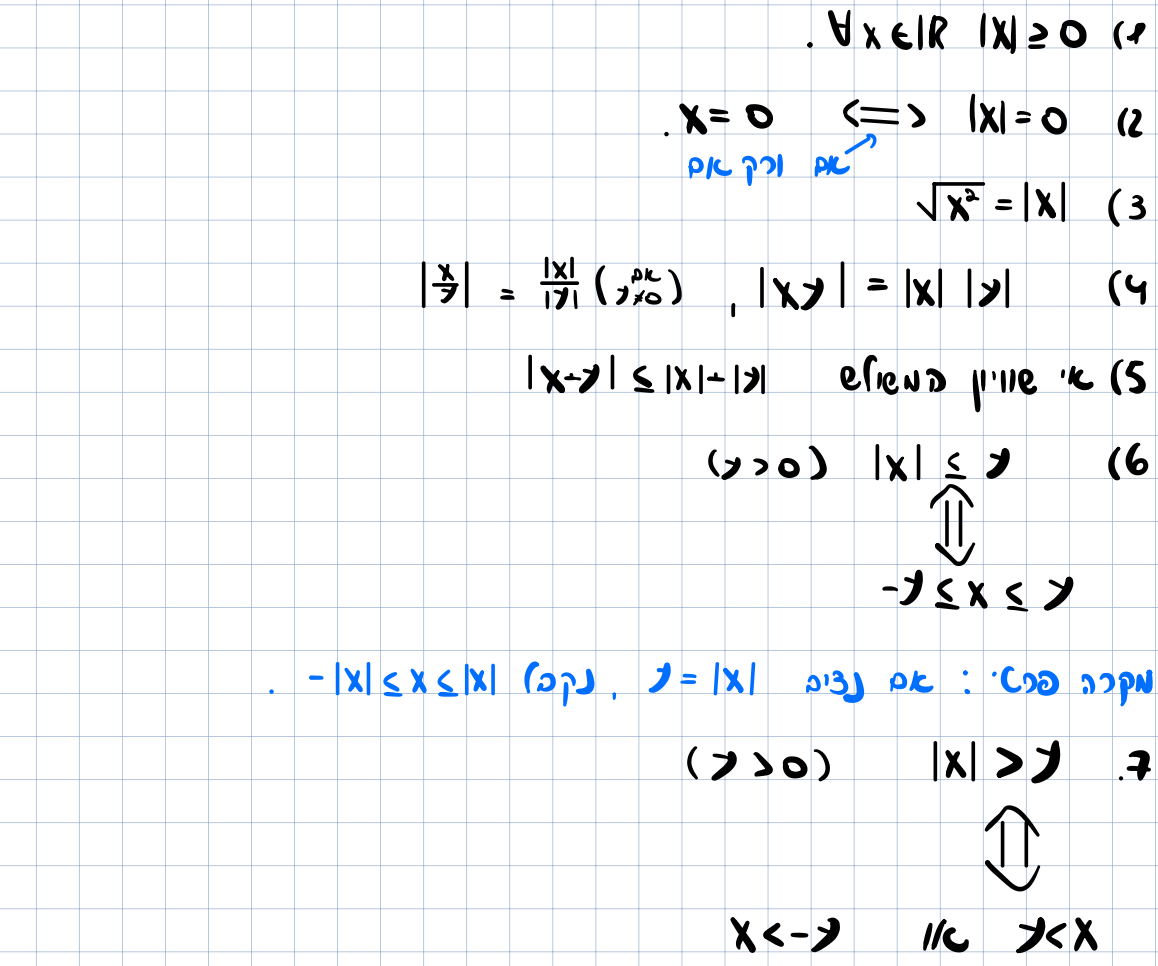 1) ∀x∈ℝ |x|≥0 .
2) |x|=0 <=> x=0 .
אם ורק אם
3) √x² = |x|
4) |xy| = |x| |y| , |x/y| = |x|/|y| (אם y≠0)
5) אי שוויון המשולש |x+y| ≤ |x|+|y|
6) |x| ≤ y (y>0)
⇕
-y ≤ x ≤ y
מקרה פרטי : אם נציב y = |x| , נקבל -|x| ≤ x ≤ |x| .
7. |x| > y (y>0)
⇕
y<x או x<-y